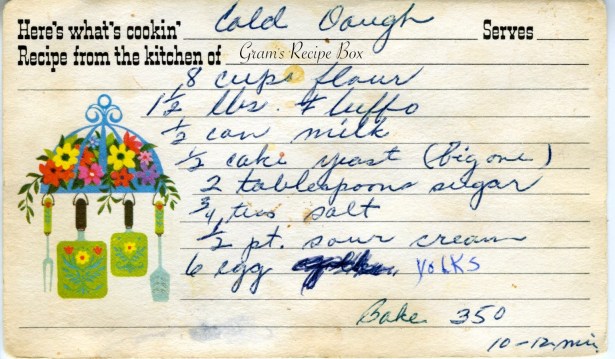 Here's what's cookin' Cold Dough Serves
Recipe from the kitchen of Gram's Recipe Box
8 cups flour
1½ lbs. Fluffo
½ can milk
½ cake yeast (big one)
2 tablespoons sugar
¾ tea salt
½ pt. sour cream
6 egg yolks
Bake 350
10-12 min